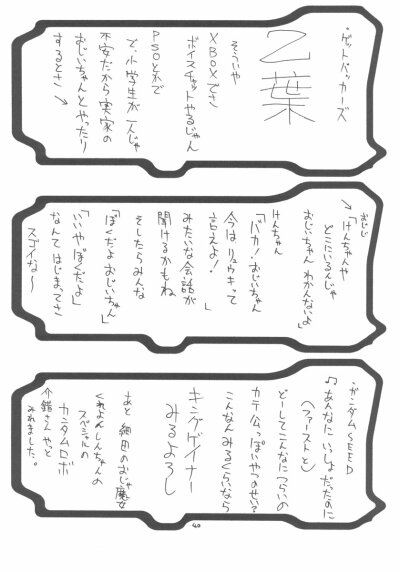 ・ゲットバッカーズ
乙葉
そういや
XBOXでさ
ボイスチャットやるじゃん
PSOとかで
で、小学生が一人じゃ
不安だから実家の
おじいちゃんとやったり
するとさ↘
おじじ
↘「けんちゃんや
どこにいるんじゃ
おじいちゃん わかんないよ」
けんちゃん
「バカ!おじいちゃん
今はリュウキって
言えよ!」
みたいな会話が
聞けるかもね
そしたらみんな
「ぼくだよ おじいちゃん」
「いいや ぼくだよ」
なんて はじまってさ
スゴイな〜
・ガンダムSEED
♪あんなに いっしょ だったのに
(ファーストと)
どーしてこんなに つらいの
カテ公っぽいやつのせい?
こんなん みるくらいなら
キングゲイナー
みるよろし
あと 細田のおじゃ魔女
くれよんしんちゃんの
スペシャルの
カンタムロボ
介錯さん やっと
みれました。
40